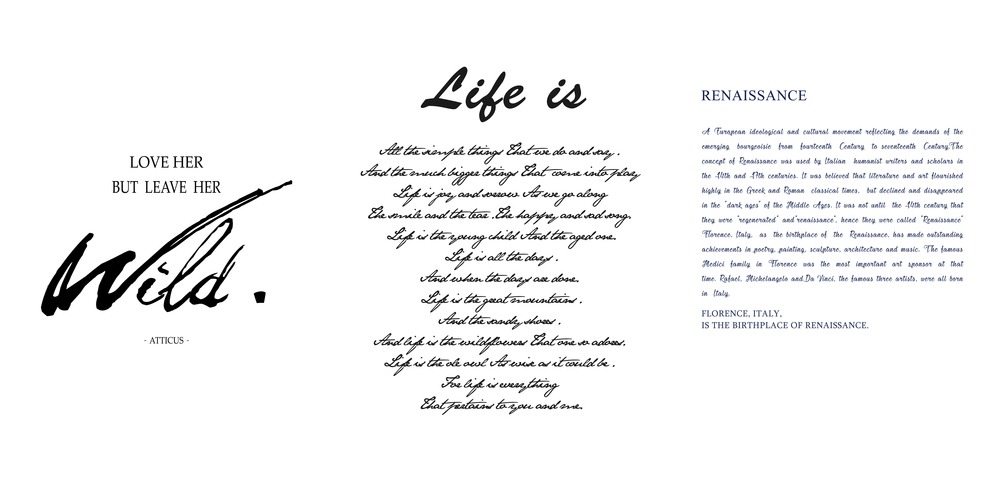 LOVE HER
BUT LEAVE HER
Wild.
- ATTICUS -
Life is
All the simple things That we do and say.
And the much bigger things That come into play
Life is joy and sorrow As we go along
The smile and the tear .The happy and sad song.
Life is the young child And the aged one.
Life is all the days .
And when the days are done.
Life is the great mountains .
And the sandy shores .
And life is the wildflowers That one so adores.
Life is the ole owl As wise as it could be .
For life is everything
That pertains to you and me.
RENAISSANCE
A European ideological and cultural movement reflecting the demands of the
emerging bourgeoisie from fourteenth Century to seventeenth Century.The
concept of Renaissance was used by Italian humanist writers and scholars in
the 14th and 17th centuries. It was believed that literature and art flourished
highly in the Greek and Roman classical times, but declined and disappeared
in the "dark ages" of the Middle Ages. It was not until the 14th century that
they were "regenerated" and"renaissance", hence they were called "Renaissance"
Florence, Italy, as the birthplace of the Renaissance, has made outstanding
achievements in poetry, painting, sculpture, architecture and music. The famous
Medici family in Florence was the most important art sponsor at that
time. Rafael, Michelangelo and Da Vinci, the famous three artists, were all born
in Italy.
FLORENCE, ITALY,
IS THE BIRTHPLACE OF RENAISSANCE.